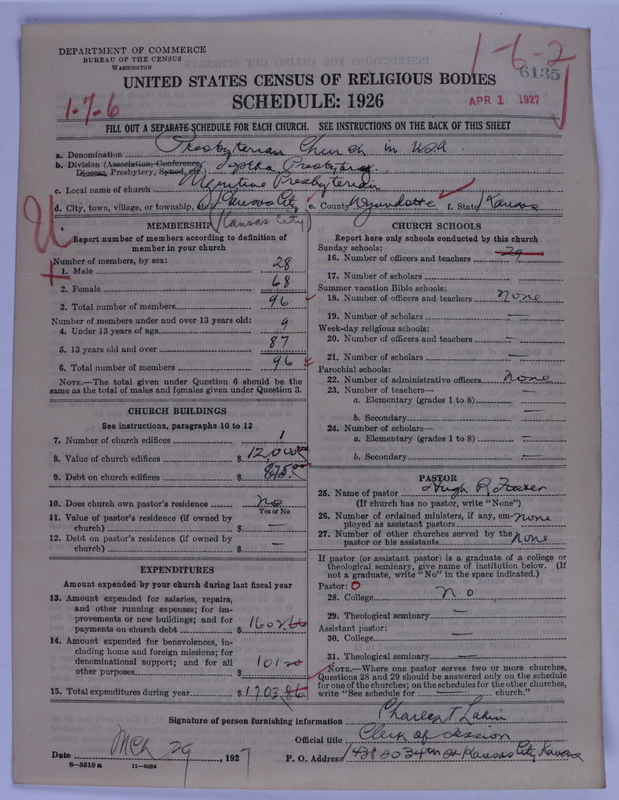 DEPARTMENT OF COMMERCE
BUREAU OF THE CENSUS
WASHINGTON
1-6-2
6135
UNITED STATES CENSUS OF RELIGIOUS BODIES
1-7-6
SCHEDULE: 1926
APR 1 1927
FILL OUT A SEPARATE SCHEDULE FOR EACH CHURCH. SEE INSTRUCTIONS ON THE BACK OF THIS SHEET
a. Denomination Presbyterian Church in USA
b. Division (Association, Conference, Diocese, Presbytery, Synod, etc.) Presbytery
c. Local name of church Presbyterian
d. City, town, village, or township, etc. Kansas City e. County Wyandotte f. State Kansas
(Kansas City)
MEMBERSHIP
Report number of members according to definition of
member in your church
Number of members, by sex:
1. Male 28
2. Female 68
3. Total number of members 96
Number of members under and over 13 years old:
4. Under 13 years of age 9
5. 13 years old and over 87
6. Total number of members 96
NOTE.—The total given under Question 6 should be the
same as the total of males and females given under Question 3.
CHURCH BUILDINGS
See instructions, paragraphs 10 to 12
7. Number of church edifices 1
8. Value of church edifices $ 12,000.00
9. Debt on church edifices $ 875.00
10. Does church own pastor's residence No
Yes or No
11. Value of pastor's residence (if owned by
church) $ —
12. Debt on pastor's residence (if owned by
church) $ —
EXPENDITURES
Amount expended by your church during last fiscal year
13. Amount expended for salaries, repairs,
and other running expenses; for im-
provements or new buildings; and for
payments on church debt $ 1602.66
14. Amount expended for benevolences, in-
cluding home and foreign missions; for
denominational support; and for all
other purposes $ 101 20
15. Total expenditures during year $ 1703.86
CHURCH SCHOOLS
Report here only schools conducted by this church
Sunday schools:
16. Number of officers and teachers 29
17. Number of scholars
Summer vacation Bible schools:
18. Number of officers and teachers none
19. Number of scholars —
Week-day religious schools:
20. Number of officers and teachers —
21. Number of scholars —
Parochial schools:
22. Number of administrative officers none
23. Number of teachers—
a. Elementary (grades 1 to 8) —
b. Secondary —
24. Number of scholars—
a. Elementary (grades 1 to 8) —
b. Secondary —
PASTOR
25. Name of pastor Hugh R.
(If church has no pastor, write "None")
26. Number of ordained ministers, if any, em-
ployed as assistant pastors none
27. Number of other churches served by the
pastor or his assistants none
If pastor (or assistant pastor) is a graduate of a college or
theological seminary, give name of institution below. (If
not a graduate, write "No" in the space indicated.)
Pastor: O
28. College no
29. Theological seminary —
Assistant pastor:
30. College —
31. Theological seminary —
NOTE.—Where one pastor serves two or more churches,
Questions 28 and 29 should be answered only on the schedule
for one of the churches; on the schedules for the other churches,
write "See schedule for church."
Signature of person furnishing information Charles T Lakin
Official title Clerk of Session
Date Mch 29, 1927
P. O. Address 34th St Kansas City, Kansas
8—5518 a 11—9054